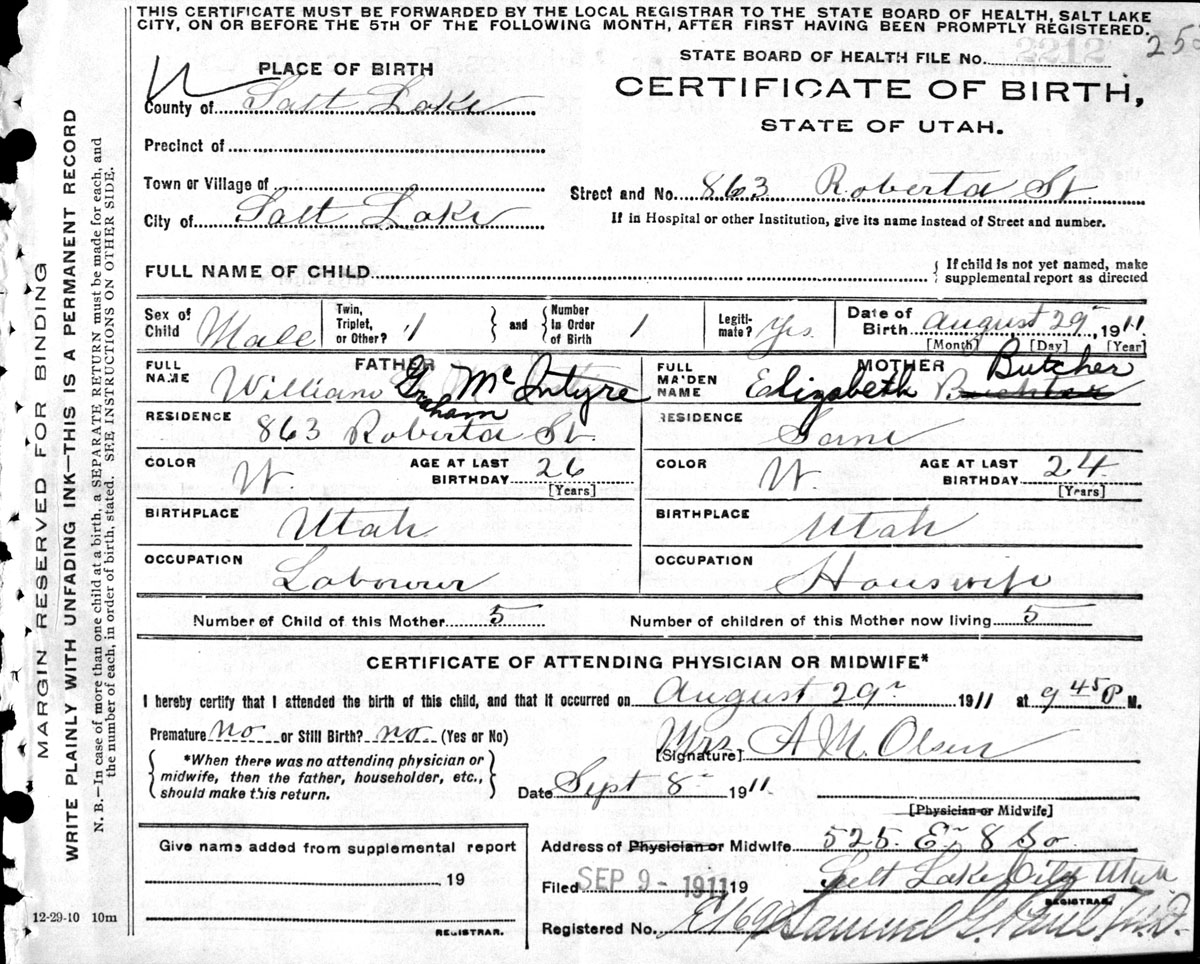 THIS CERTIFICATE MUST BE FORWARDED BY THE LOCAL REGISTRAR TO THE STATE BOARD OF HEALTH, SALT LAKE
CITY, ON OR BEFORE THE 5TH OF THE FOLLOWING MONTH, AFTER FIRST HAVING BEEN PROMPTLY REGISTERED.
STATE BOARD OF HEALTH FILE NO. 2212
PLACE OF BIRTH
CERTIFICATE OF BIRTH,
STATE OF UTAH.
County of Salt Lake
Precinct of
Town or Village of
Street and No. 863 Roberta St.
City of Salt Lake
If in Hospital or other Institution, give its name instead of Street and number.
FULL NAME OF CHILD
{ If child is not yet named, make
supplemental report as directed
Sex of Child Male
Twin, Triplet, or Other? 1 } and { Number in Order of Birth 1
Legitimate? Yes.
Date of Birth August 29", 1911
[Month] [Day] [Year]
FATHER
FULL NAME William Graham McIntyre
MOTHER
FULL MAIDEN NAME Elizabeth Butcher
RESIDENCE 863 Roberta St.
RESIDENCE Same
COLOR W. AGE AT LAST BIRTHDAY 26 [Years]
COLOR W. AGE AT LAST BIRTHDAY 24 [Years]
BIRTHPLACE Utah
BIRTHPLACE Utah
OCCUPATION Labourer
OCCUPATION Houswife
Number of Child of this Mother 5 Number of children of this Mother now living 5
CERTIFICATE OF ATTENDING PHYSICIAN OR MIDWIFE*
I hereby certify that I attended the birth of this child, and that it occurred on August 29" 1911 at 9 45 P M.
Premature no or Still Birth? no (Yes or No)
Mrs A M. Olsen
[Signature]
{ *When there was no attending physician or
midwife, then the father, householder, etc.,
should make this return. }
Date Sept 8" 1911
[Physician or Midwife]
Address of Physician or Midwife 525. E" 8 So
Salt Lake City Utah
Give name added from supplemental report
19
REGISTRAR.
Filed SEP 9 - 1911 19
REGISTRAR.
Registered No. E169 Samuel G. Paul M.D.
12-29-10 10m
MARGIN RESERVED FOR BINDING
WRITE PLAINLY WITH UNFADING INK—THIS IS A PERMANENT RECORD
N. B.—In case of more than one child at a birth, a SEPARATE RETURN must be made for each, and
the number of each, in order of birth, stated. SEE INSTRUCTIONS ON OTHER SIDE.